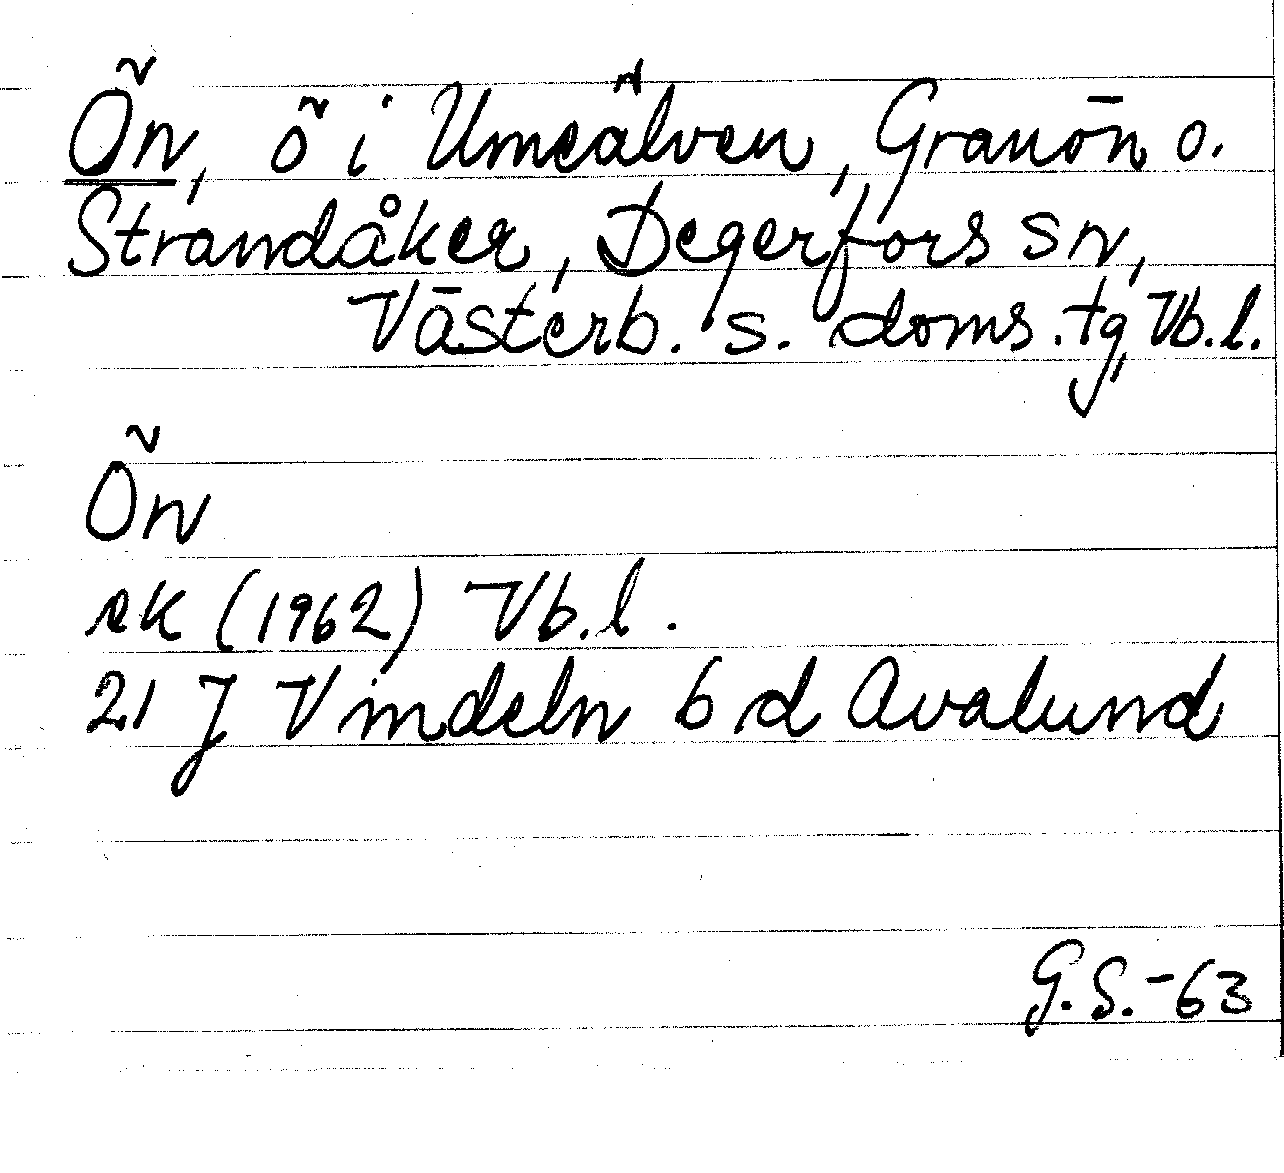 Ön, ö i Umeälven, Granön o.
Strandåker, Degerfors sn,
Västerb. s. doms. tg, Vb. l.
Ön
ek (1962) Vb. l.
21 J Vindeln 6 d Avalund
G.S.-63